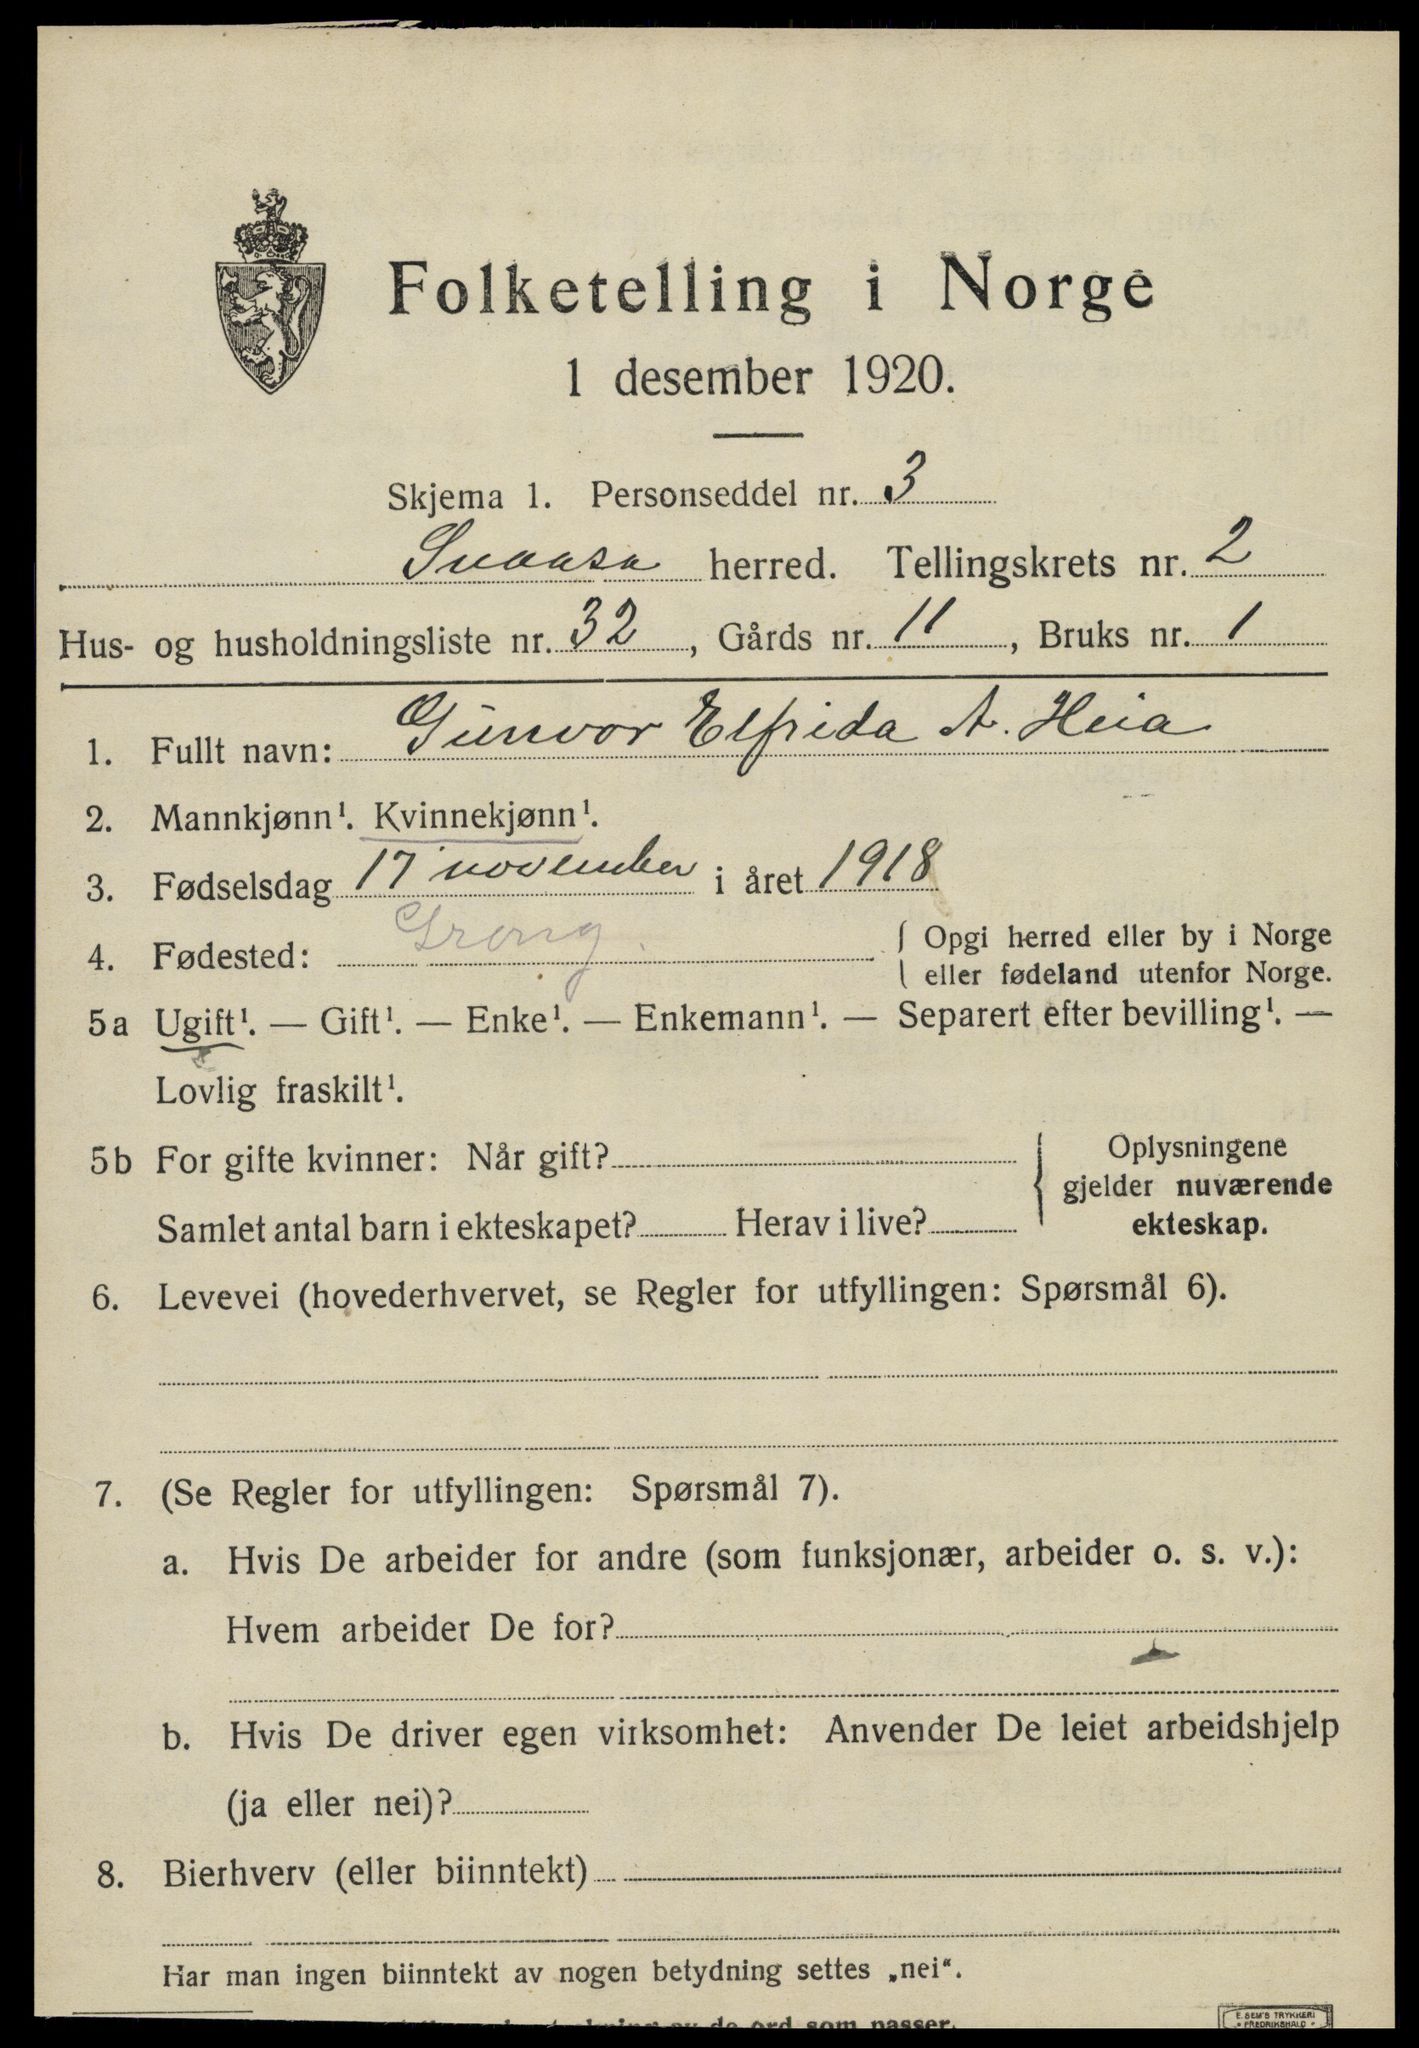 Folketelling i Norge
1 desember 1920.
Skjema 1. Personseddel nr. 3
Snaasa herred. Tellingskrets nr. 2
Hus- og husholdningsliste nr. 32, Gårds nr. 11, Bruks nr. 1
1. Fullt navn: Gunvor Elfrida A. Heia
2. Mannkjønn¹. Kvinnekjønn¹.
3. Fødselsdag 17 november i året 1918
4. Fødested: Grong. { Opgi herred eller by i Norge
eller fødeland utenfor Norge.
5a Ugift¹. — Gift¹. — Enke¹. — Enkemann¹. — Separert efter bevilling¹. —
Lovlig fraskilt¹.
5b For gifte kvinner: Når gift?
Samlet antal barn i ekteskapet? Herav i live?
{ Oplysningene
gjelder nuværende
ekteskap.
6. Levevei (hovederhvervet, se Regler for utfyllingen: Spørsmål 6).
7. (Se Regler for utfyllingen: Spørsmål 7).
a. Hvis De arbeider for andre (som funksjonær, arbeider o. s. v.):
Hvem arbeider De for?
b. Hvis De driver egen virksomhet: Anvender De leiet arbeidshjelp
(ja eller nei)?
8. Bierhverv (eller biinntekt)
Har man ingen biinntekt av nogen betydning settes „nei“.
av de ord som passer.
E. SEM'S TRYKKERI
FREDRIKSHALD